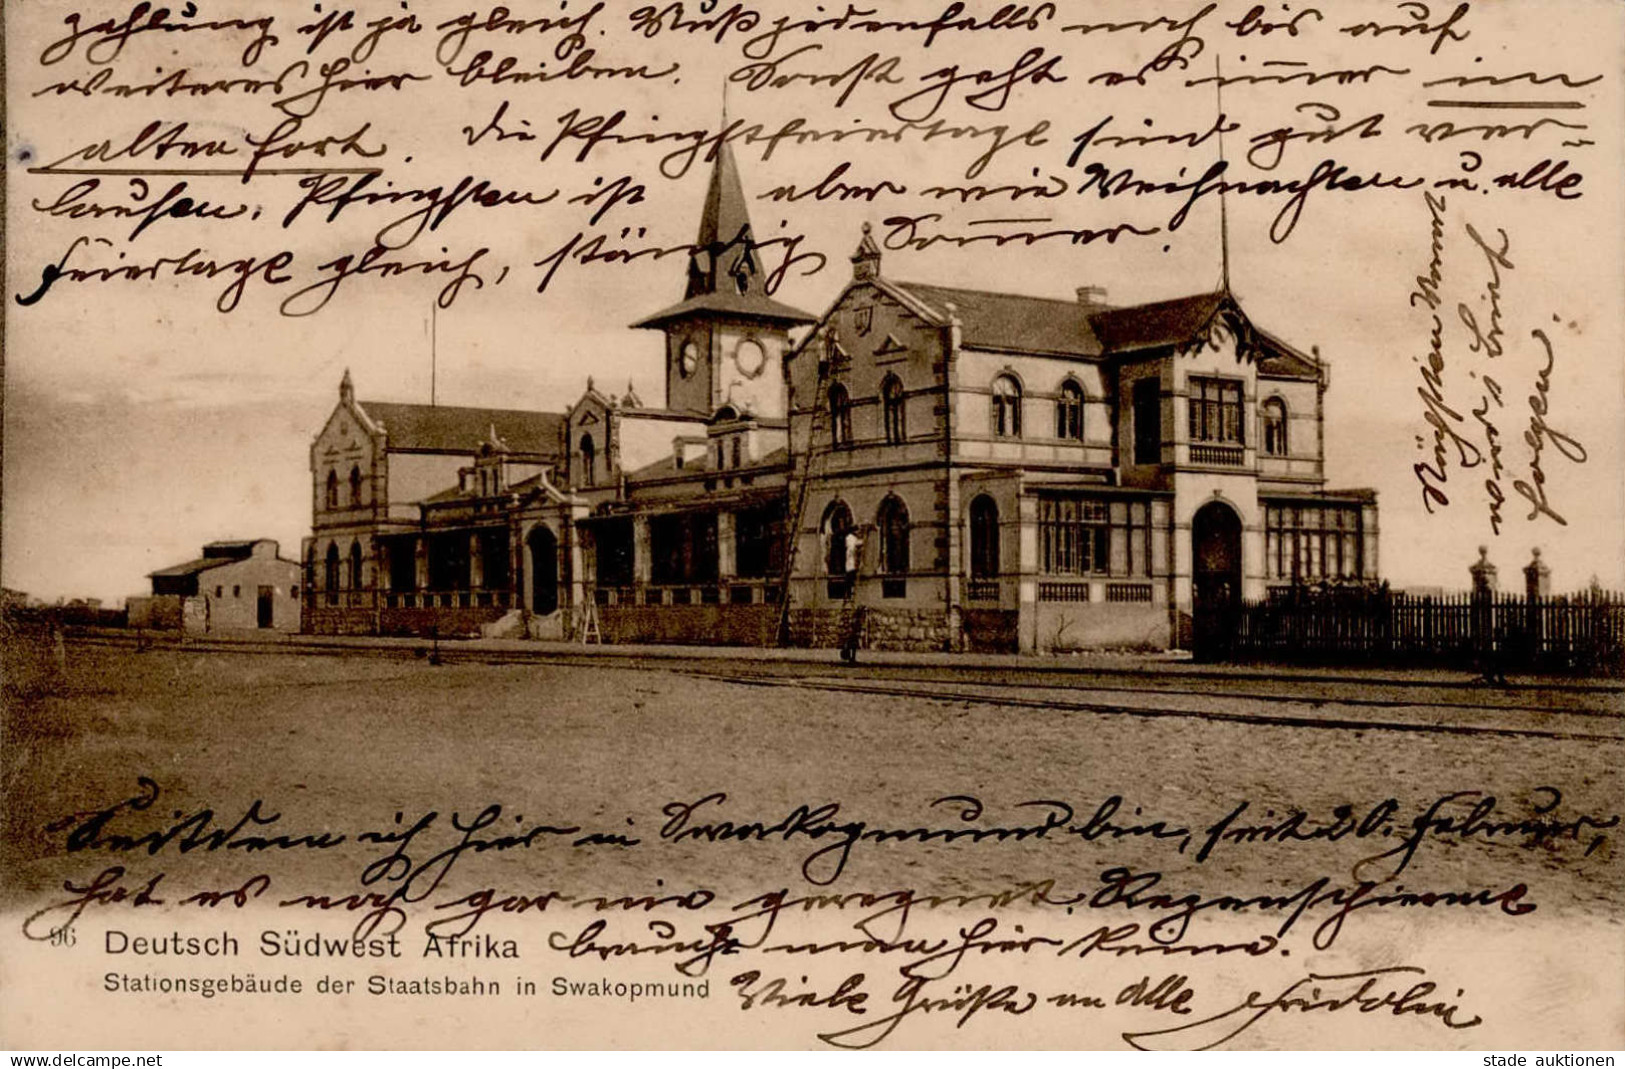 zahlung ist ja gleich. Muß jedenfalls noch bis auf
weiteres hier bleiben. Sonst geht es im̅er im
alten fort. Die Pfingstfeiertage sind gut ver-
laufen. Pfingsten ist aber wie Weihnachten u. alle
Feiertage gleich, ständig Som̅er.
Nächsten Monat
wird Brief
folgen.
Seitdem ich hier in Swakopmund bin, seit 20. Februar,
hat es noch gar nie geregnet. Regenschirme
brauch man hier keine.
Viele Grüße an Alle Fridolin
96 Deutsch Südwest Afrika
Stationsgebäude der Staatsbahn in Swakopmund
www.delcampe.net
stade auktionen